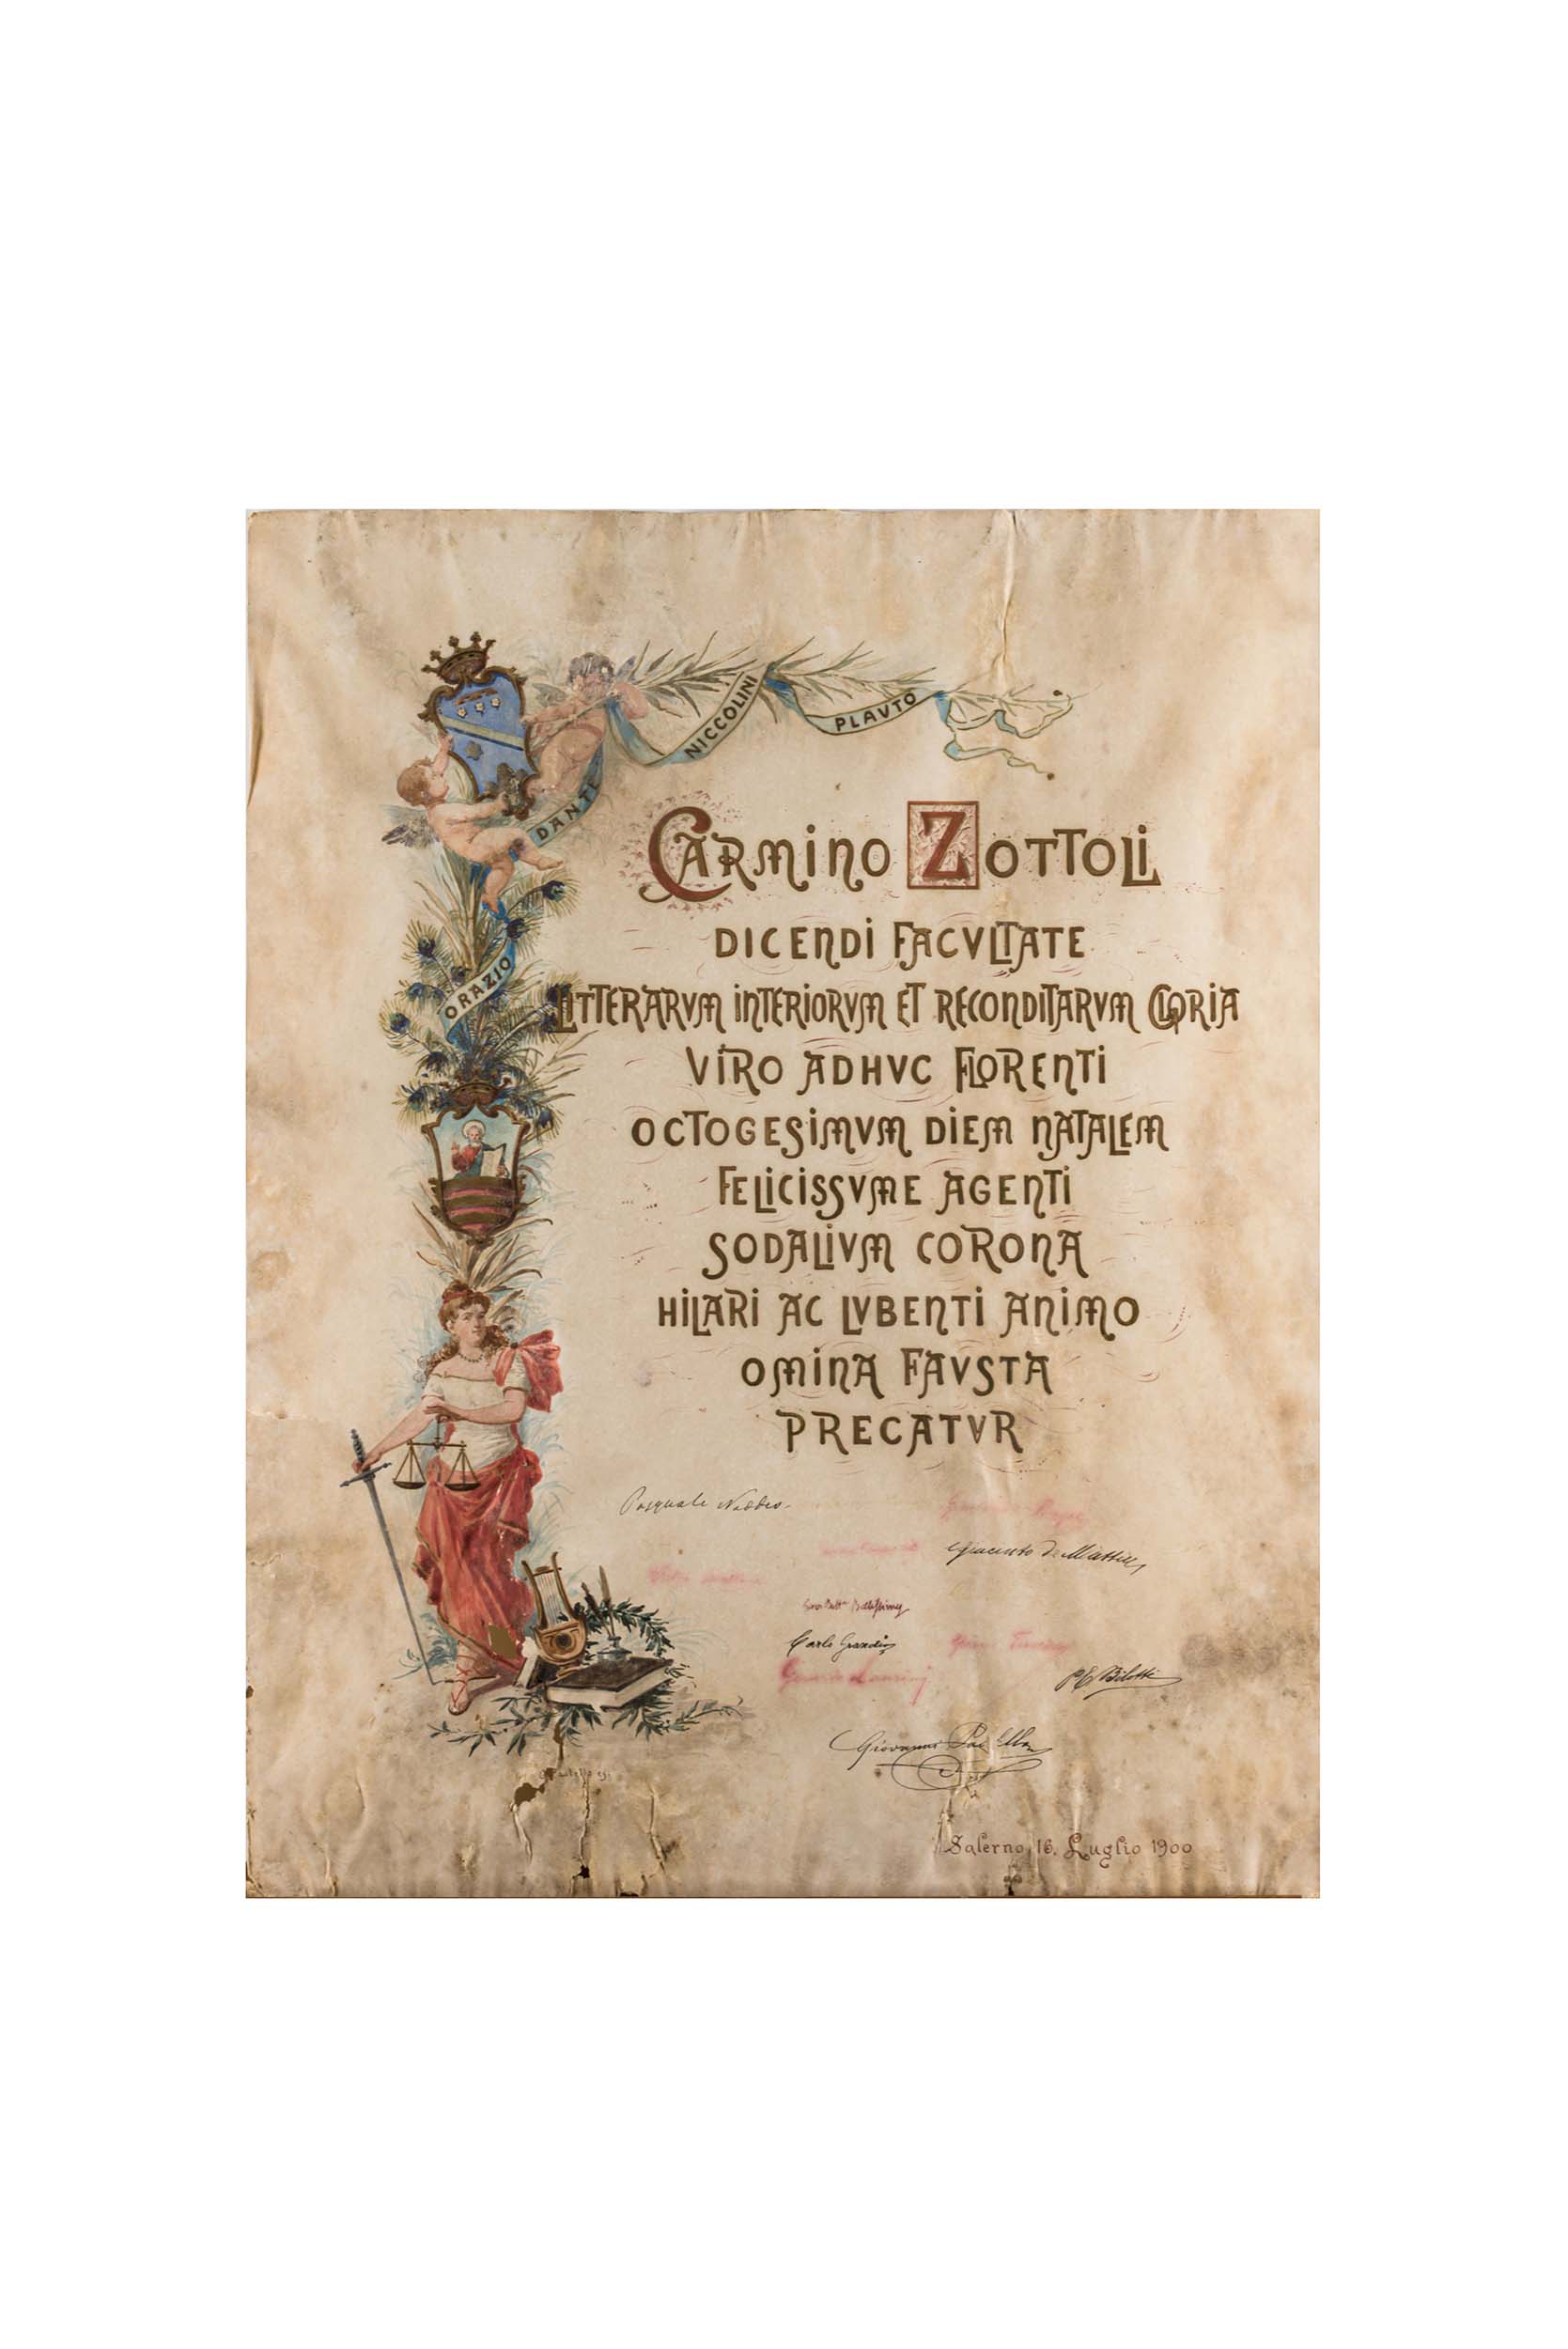 NICCOLINI
PLAVTO
DANTE
ORAZIO
CARMINO ZOTTOLI
DICENDI FACVLTATE
LITTERARVM INTERIORVM ET RECONDITARVM GLORIA
VIRO ADHVC FLORENTI
OCTOGESIMVM DIEM NATALEM
FELICISSVME AGENTI
SODALIVM CORONA
HILARI AC LVBENTI ANIMO
OMINA FAVSTA
PRECATVR
Pasquale Naddeo
Giacinto de Mattia
Carlo Grandino
P. E. Bilotti
Giovanni
Salerno, 16. Luglio 1900